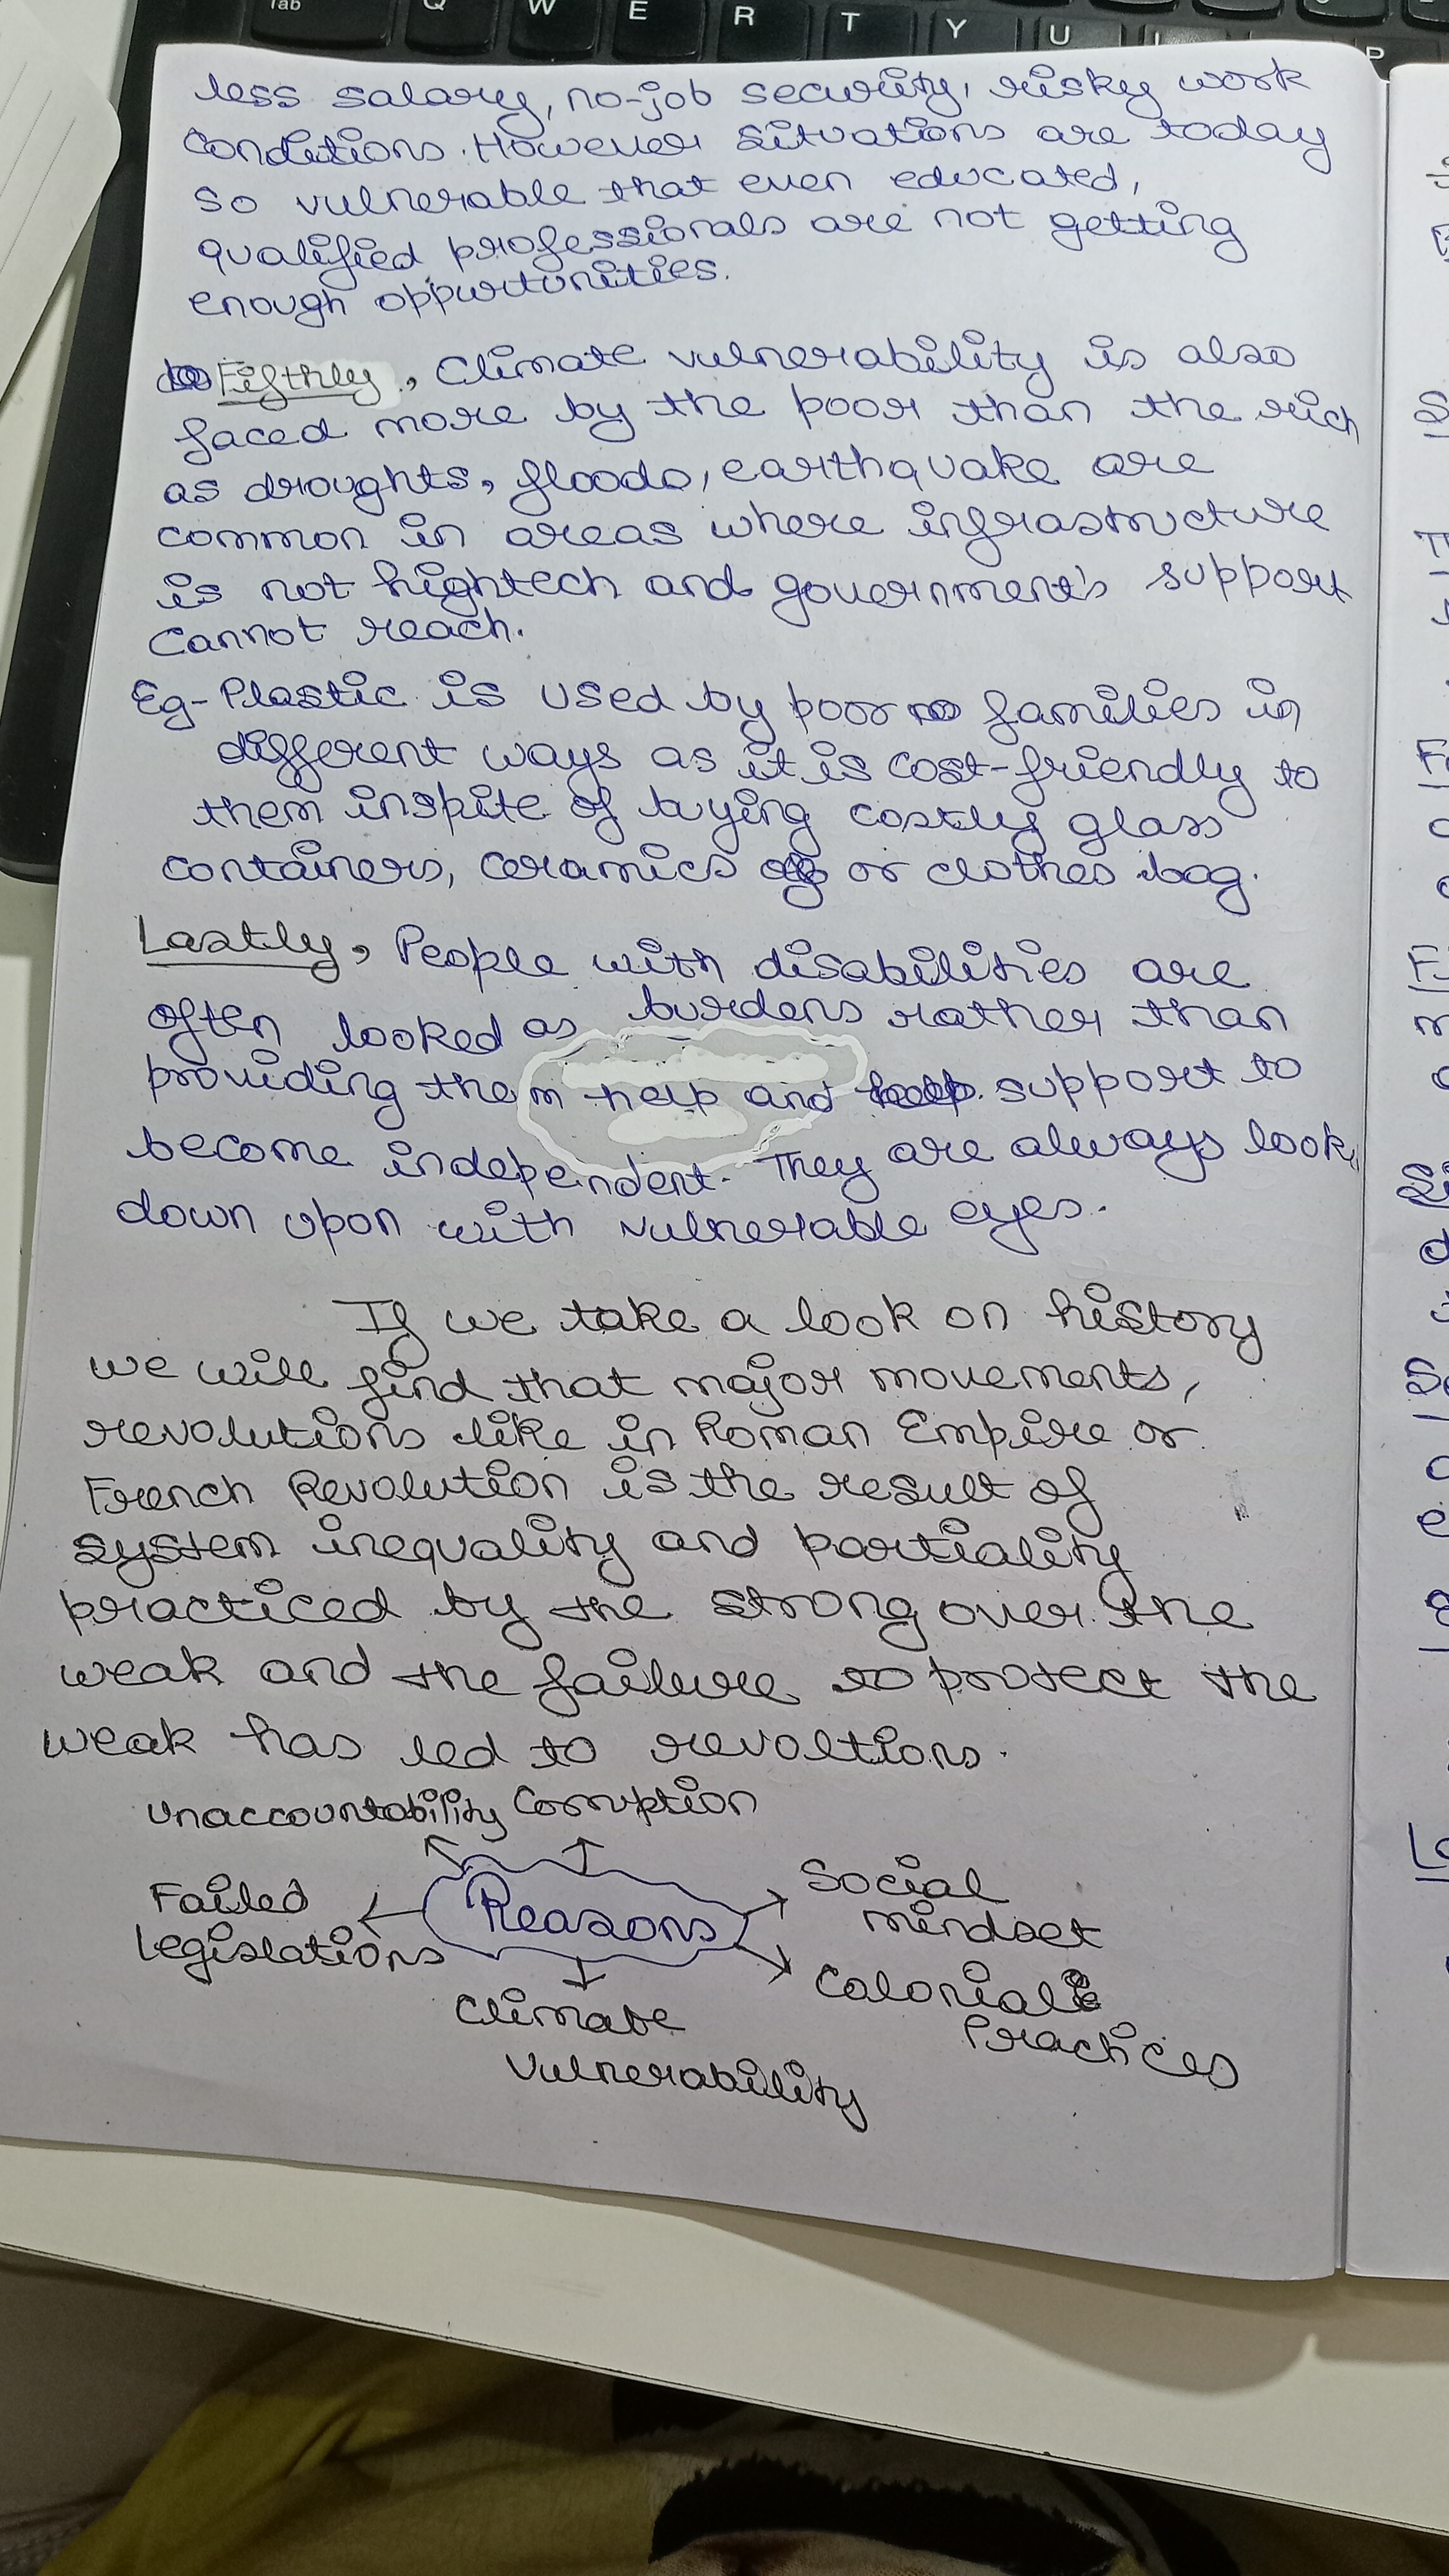 Tab Q W E R T Y U I P
less salary, no-job security, risky work
conditions. However situations are today
so vulnerable that even educated,
qualified professionals are not getting
enough oppurtunities.
Fifthly, Climate vulnerability is also
faced more by the poor than the rich
as droughts, floods, earthquake are
common in areas where infrastructure
is not hightech and government's support
cannot reach.
Eg- Plastic is used by poor families in
different ways as it is cost-friendly to
them inspite of buying costly glass
containers, ceramics or clothes bag.
Lastly, People with disabilities are
often looked as burdens rather than
providing them help and support to
become independent. They are always look
down upon with vulnerable eyes.
If we take a look on history
we will find that major movements,
revolutions like in Roman Empire or
French Revolution is the result of
system inequality and partiality
practiced by the strong over the
weak and the failure to protect the
weak has led to revoltions.
Unaccountability Corruption
Failed Legislations
Reasons
Social mindset
Climate Vulnerability
Colonial Practices